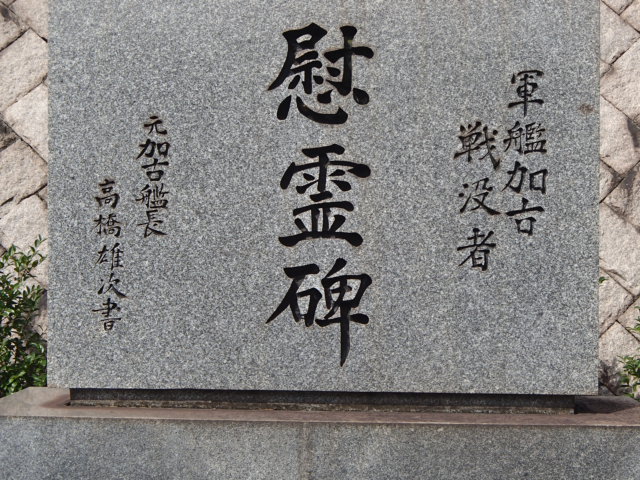 軍艦加古
戦没者
慰霊碑
元加古艦長
高橋雄次書